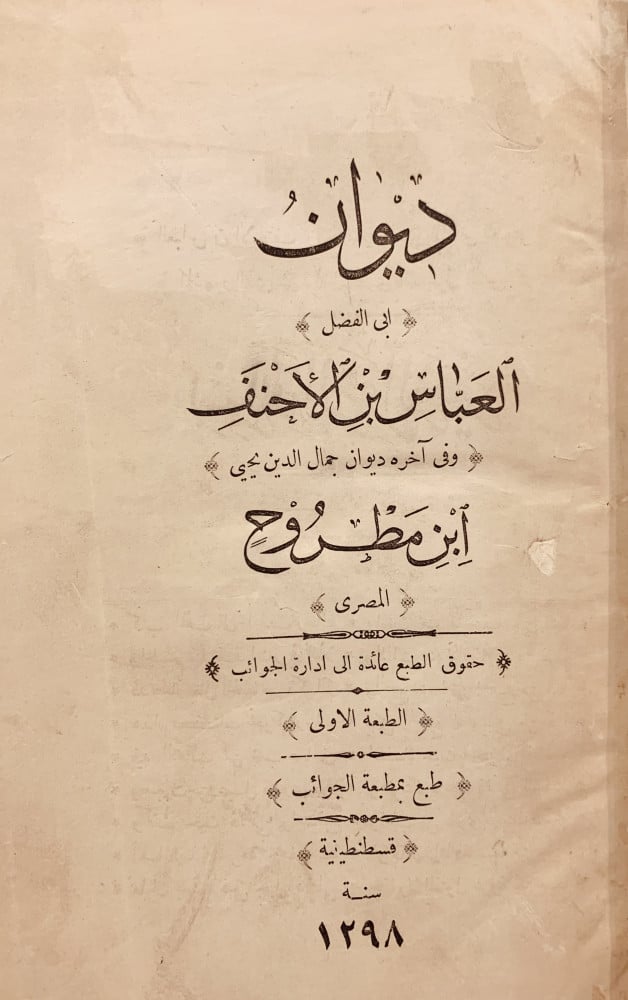 ديوان
﴿ ابى الفضل ﴾
ٱلعَبَّاسِ بْنِ ٱلأَحْنَفِ
﴿ وفى آخره ديوان جمال الدين يحيي ﴾
ٱبْنِ مَطْرُوْحٍ
﴿ المصرى ﴾
﴿ حقوق الطبع عائدة الى ادارة الجوائب ﴾
﴿ الطبعة الاولى ﴾
﴿ طبع بمطبعة الجوائب ﴾
﴿ قسطنطينية ﴾
سنة
١٢٩٨